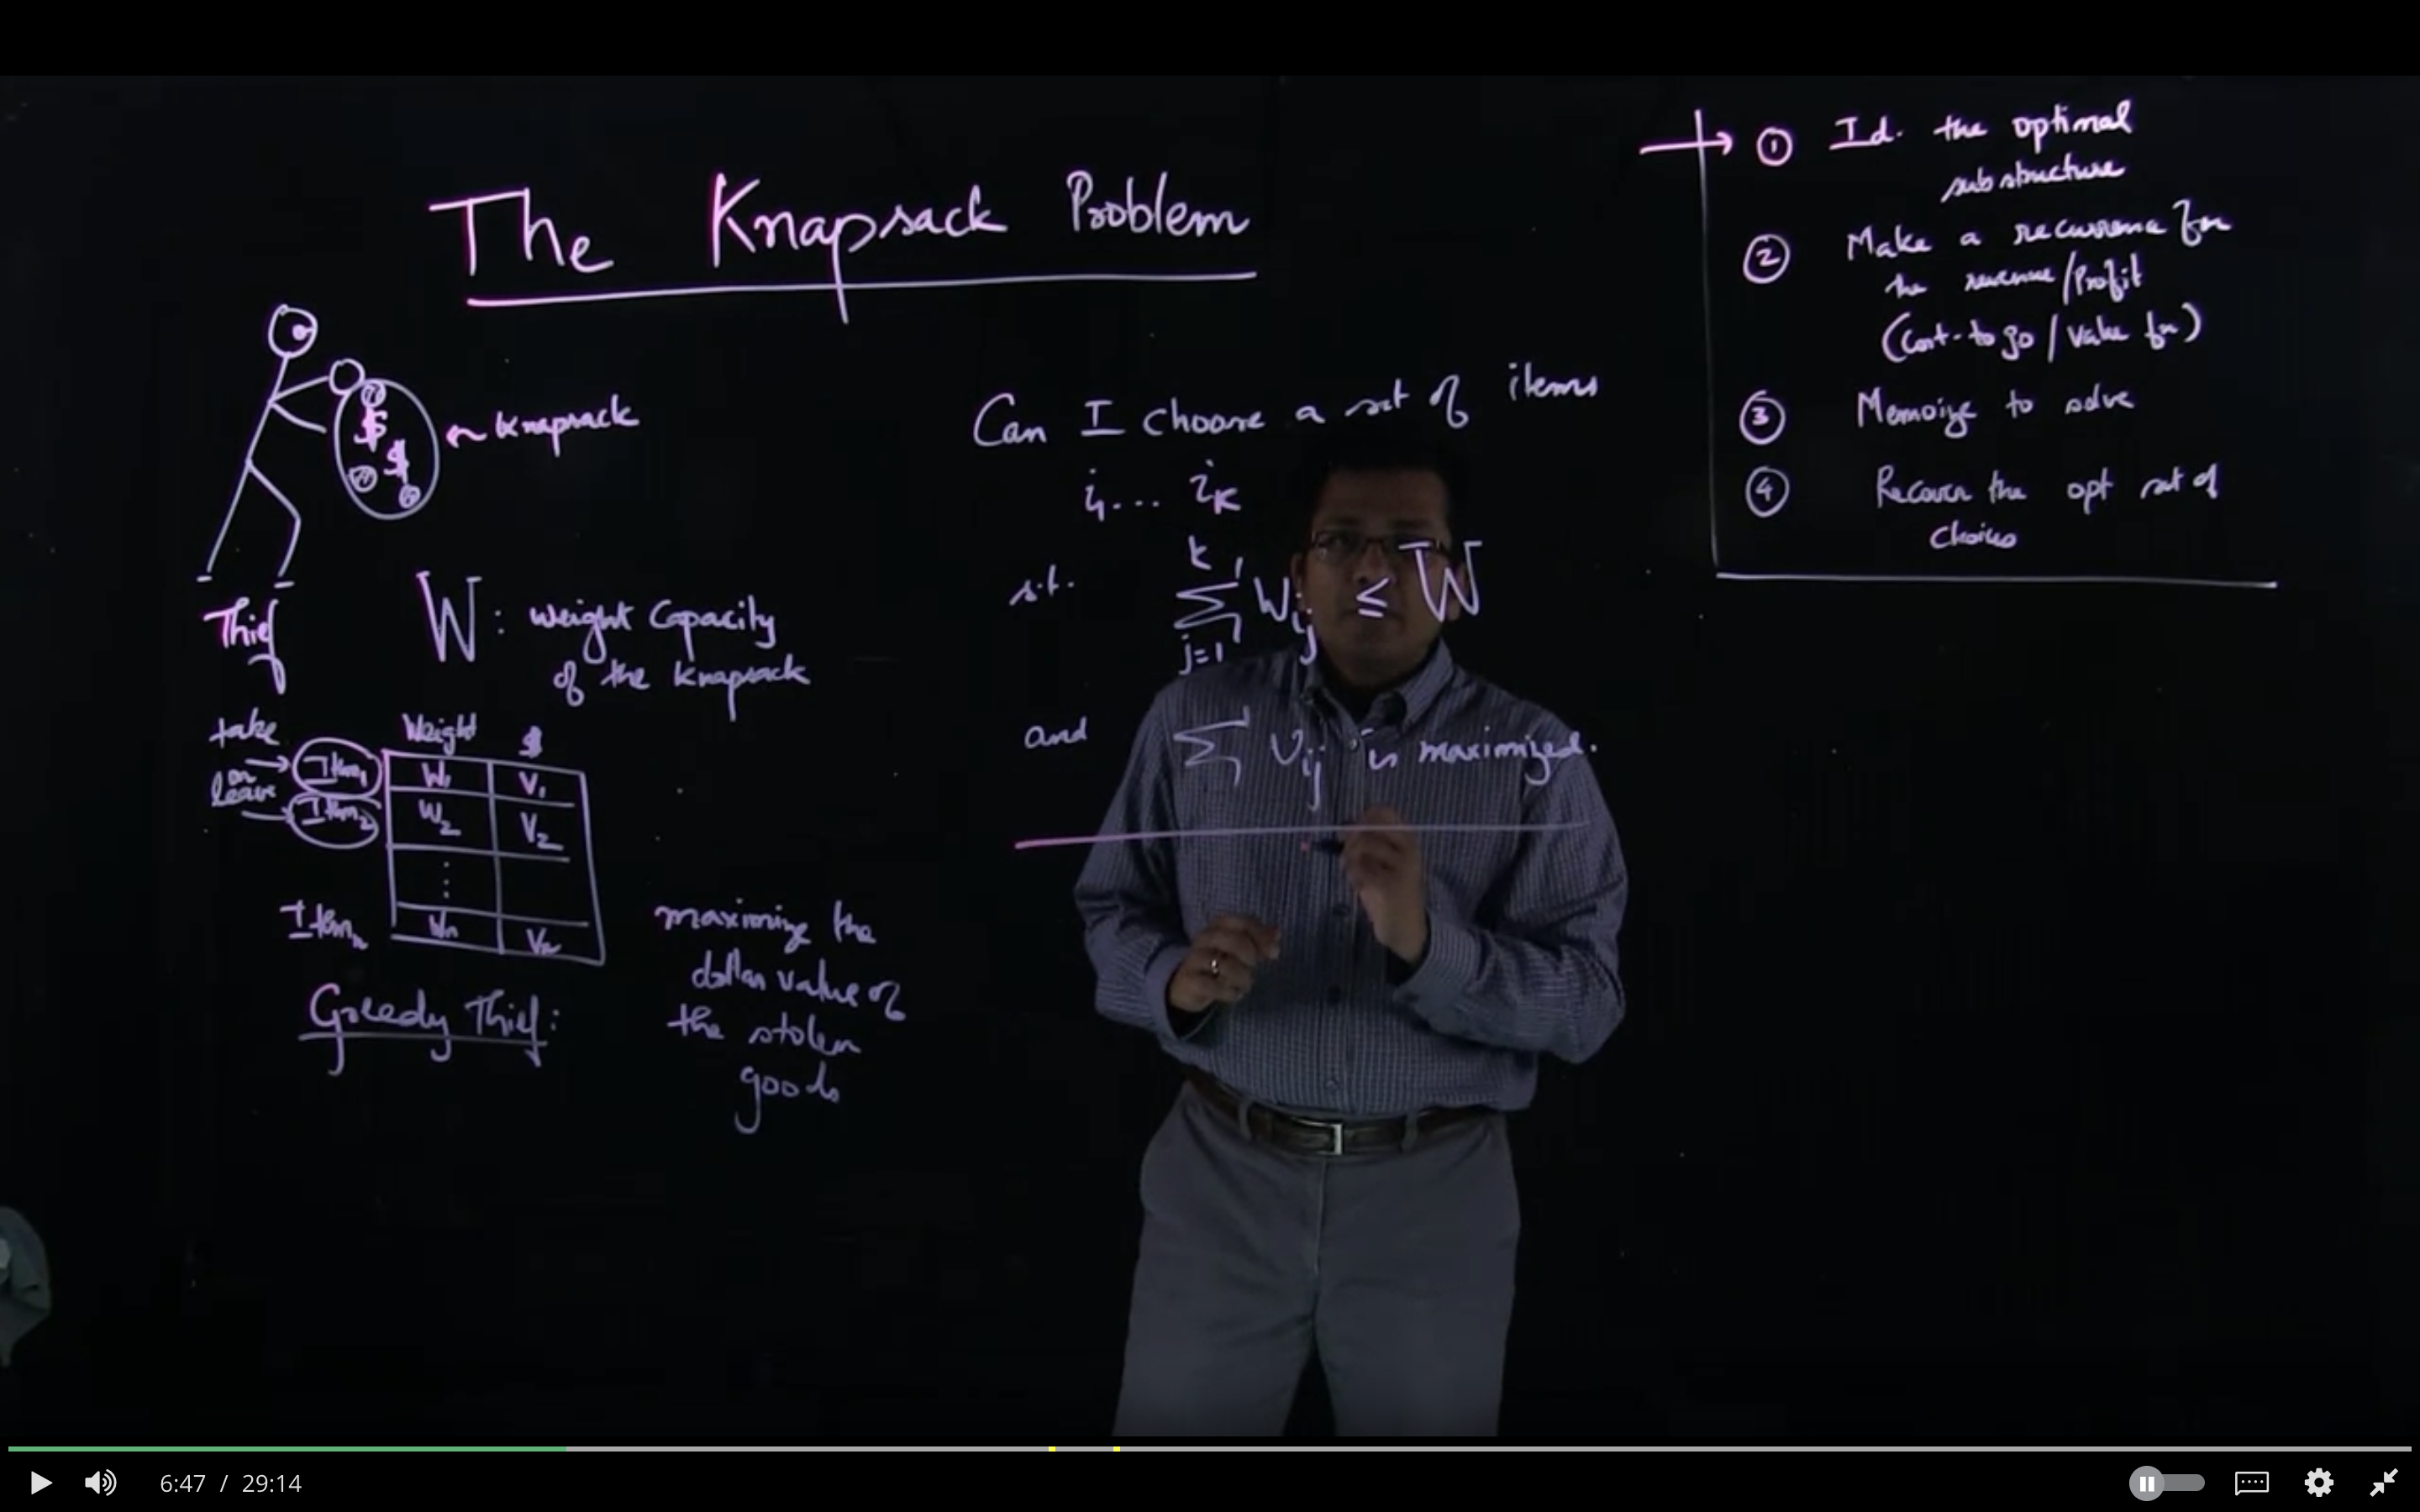 The Knapsack Problem
Knapsack
Thief
W: Weight Capacity
of the Knapsack
take
or
leave
Weight $
Item1 W1 V1
Item2 W2 V2
⋮
Itemn Wn Vn
Greedy Thief:
maximize the
dollar value of
the stolen
goods
Can I choose a set of items
i1... iK
s.t. k
∑ Wij ≤ W
j=1
and ∑ Vij is maximized.
→ ① Id. the optimal
substructure
② Make a recurrence for
the revenue/Profit
(Cost-to go / Value fn)
③ Memoize to solve
④ Recover the opt set of
choices
6:47 / 29:14